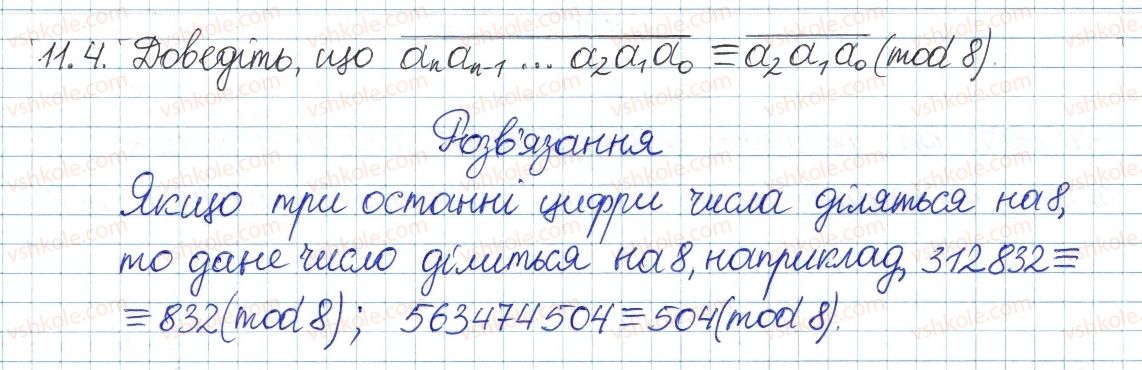 11.4. Доведіть, що aₙaₙ₋₁ ... a₂a₁a₀ ≡ a₂a₁a₀ (mod 8).
Розв'язання
Якщо три останні цифри числа діляться на 8,
то дане число ділиться на 8, наприклад, 312832 ≡
≡ 832 (mod 8); 563474504 ≡ 504 (mod 8).